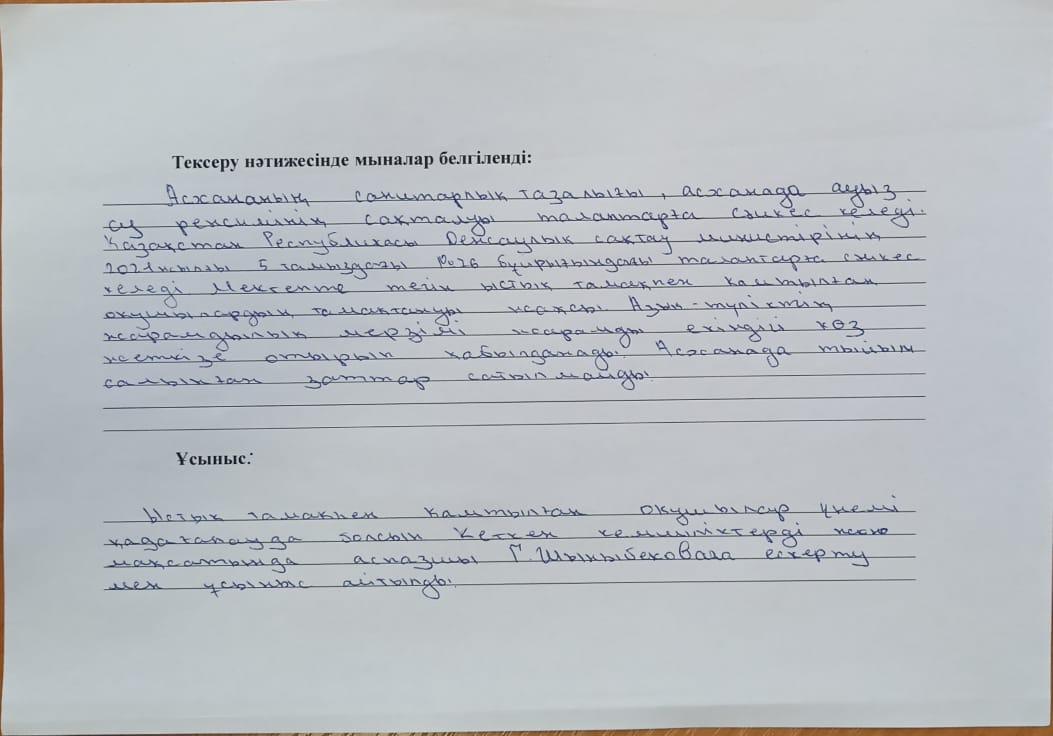 Тексеру нәтижесінде мыналар белгіленді:
Асхананың санитарлық тазалығы, асханада ауыз
су режимінің сақталуы талаптарға сәйкес келеді.
Қазақстан Республикасы Денсаулық сақтау министірінің
2021жылғы 5 тамыздағы №76 бұйрығындағы талаптарға сәйкес
келеді Мектепте тегін ыстық тамақпен қамтылған
оқушылардың тамақтануы жақсы. Азық-түліктің
жарамдылық мерзімі жарамды екіндігі көз
жеткізе отырып қабылданады. Асханада тыйым
салынған заттар сатылмайды.
Ұсыныс:
Ыстық тамақпен қамтылған оқушылар үнемі
қадағалауда болсын Кеткен кемшіліктерді жою
мақсатында аспазшы Г.Шыныбековаға ескерту
мен ұсыныс айтылды.